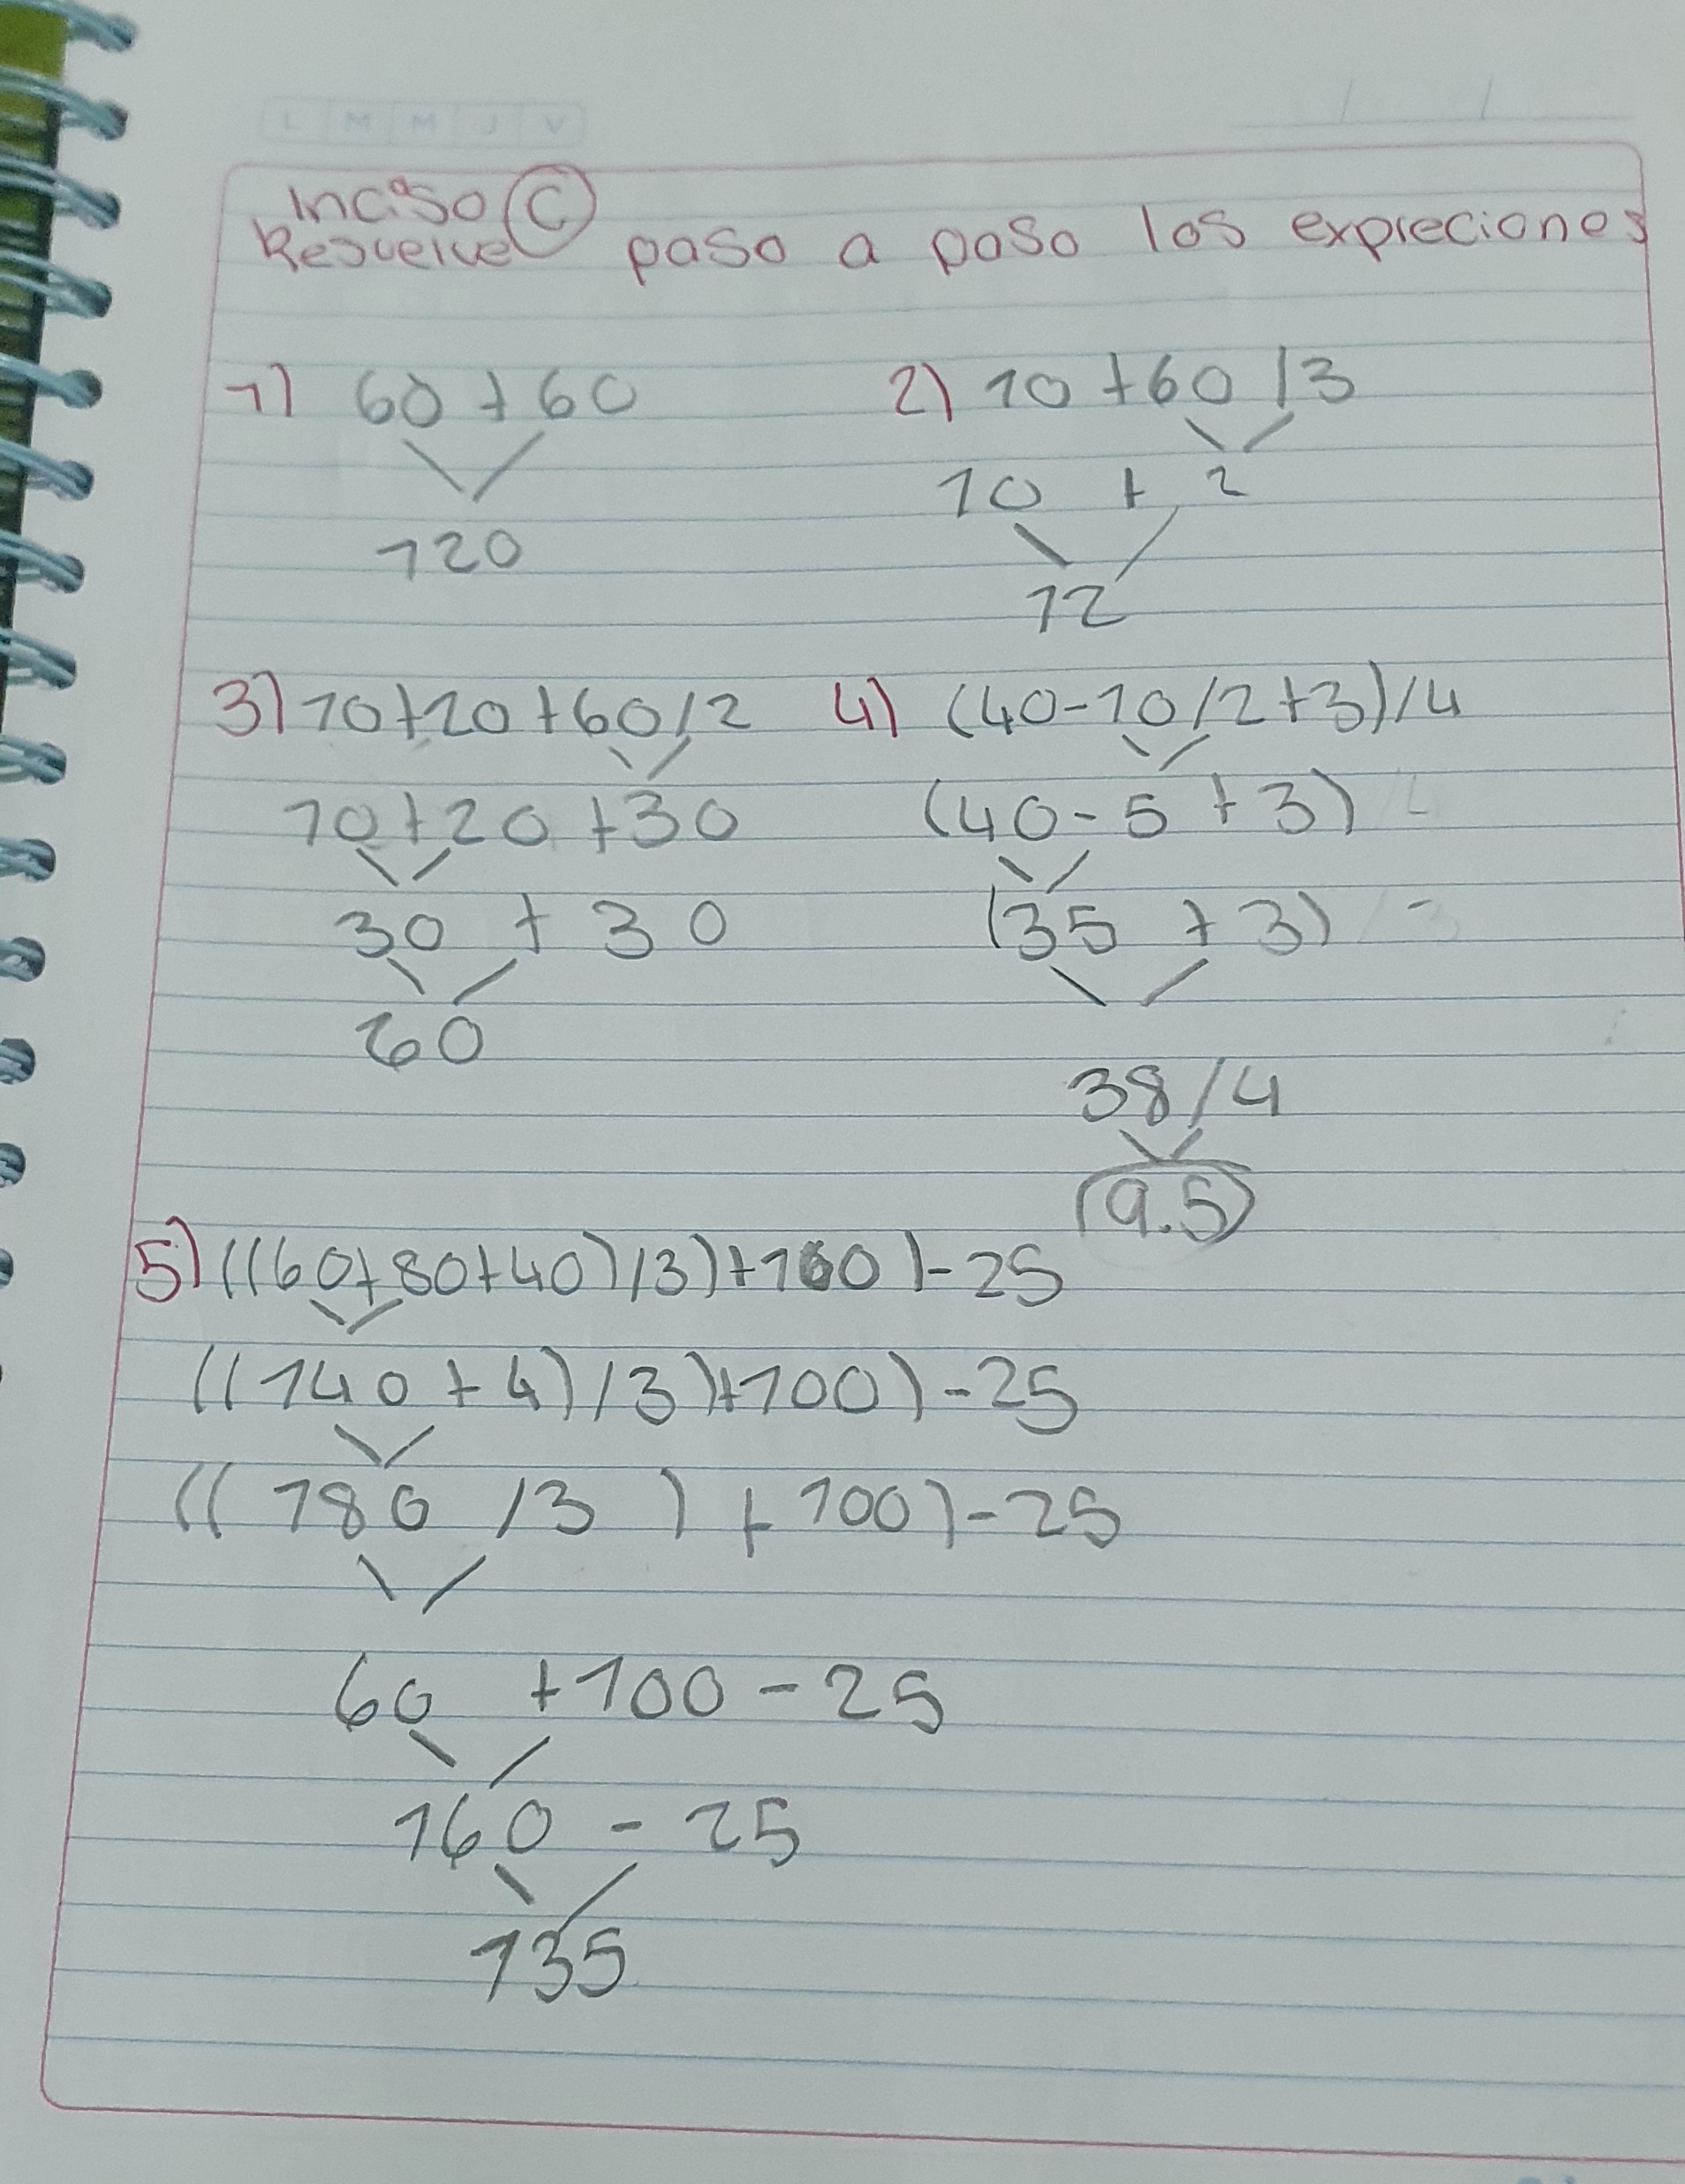 L M M J V
Inciso C
Resuelve paso a paso los expreciones
1) 60 + 60
120
2) 10 + 60 / 3
10 + 2
12
3) 10+20+60/2
10+20+30
30 + 30
60
4) (40-10/2+3)/4
(40-5+3)
(35 + 3)
38/4
9.5
5) ((60+80+40)/3)+100)-25
((140+4)/3)+100)-25
((180 /3 ) + 100)-25
60 +100-25
160 - 25
135